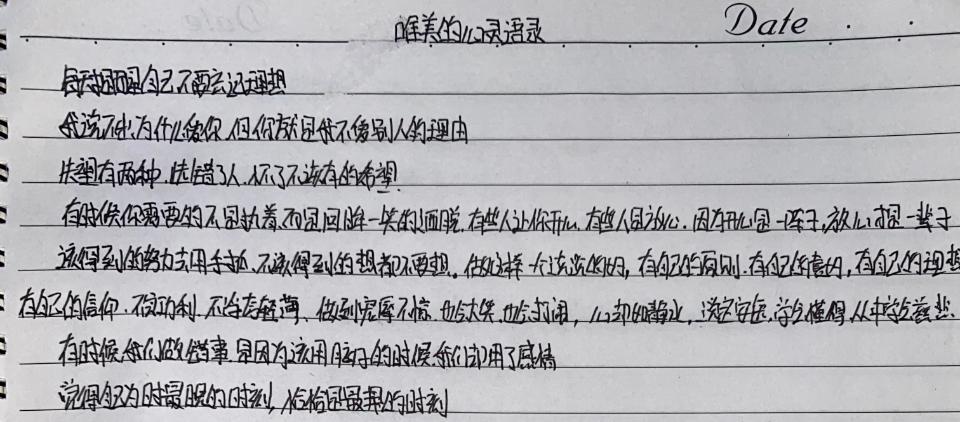 唯美的心灵语录
Date
每时提醒自己不要忘记理想
我说不出为什么爱你,但你就是我不爱别人的理由
失望有两种.选错了人.怀了不该有的希望!
有时候你需要的不是执着.而是回眸一笑的洒脱.有些人让你开心.有些人是放心.因为开心是一阵子,放心才是一辈子
该得到的努力去用手拼.不该得到的想都不要想。做如这样一个淡淡的,有自己的原则.有自己的,有自己的理想
有自己的信仰.不急功利.不浮夸轻薄.做到宠辱不惊.也会大笑.也会打闹,心却如静止,淡定安.学会懂得,从中学会慈悲.
有时候我们做错事.是因为该用脑子的时候我们却用了感情
觉得为时最晚的时刻,恰恰是最早的时刻